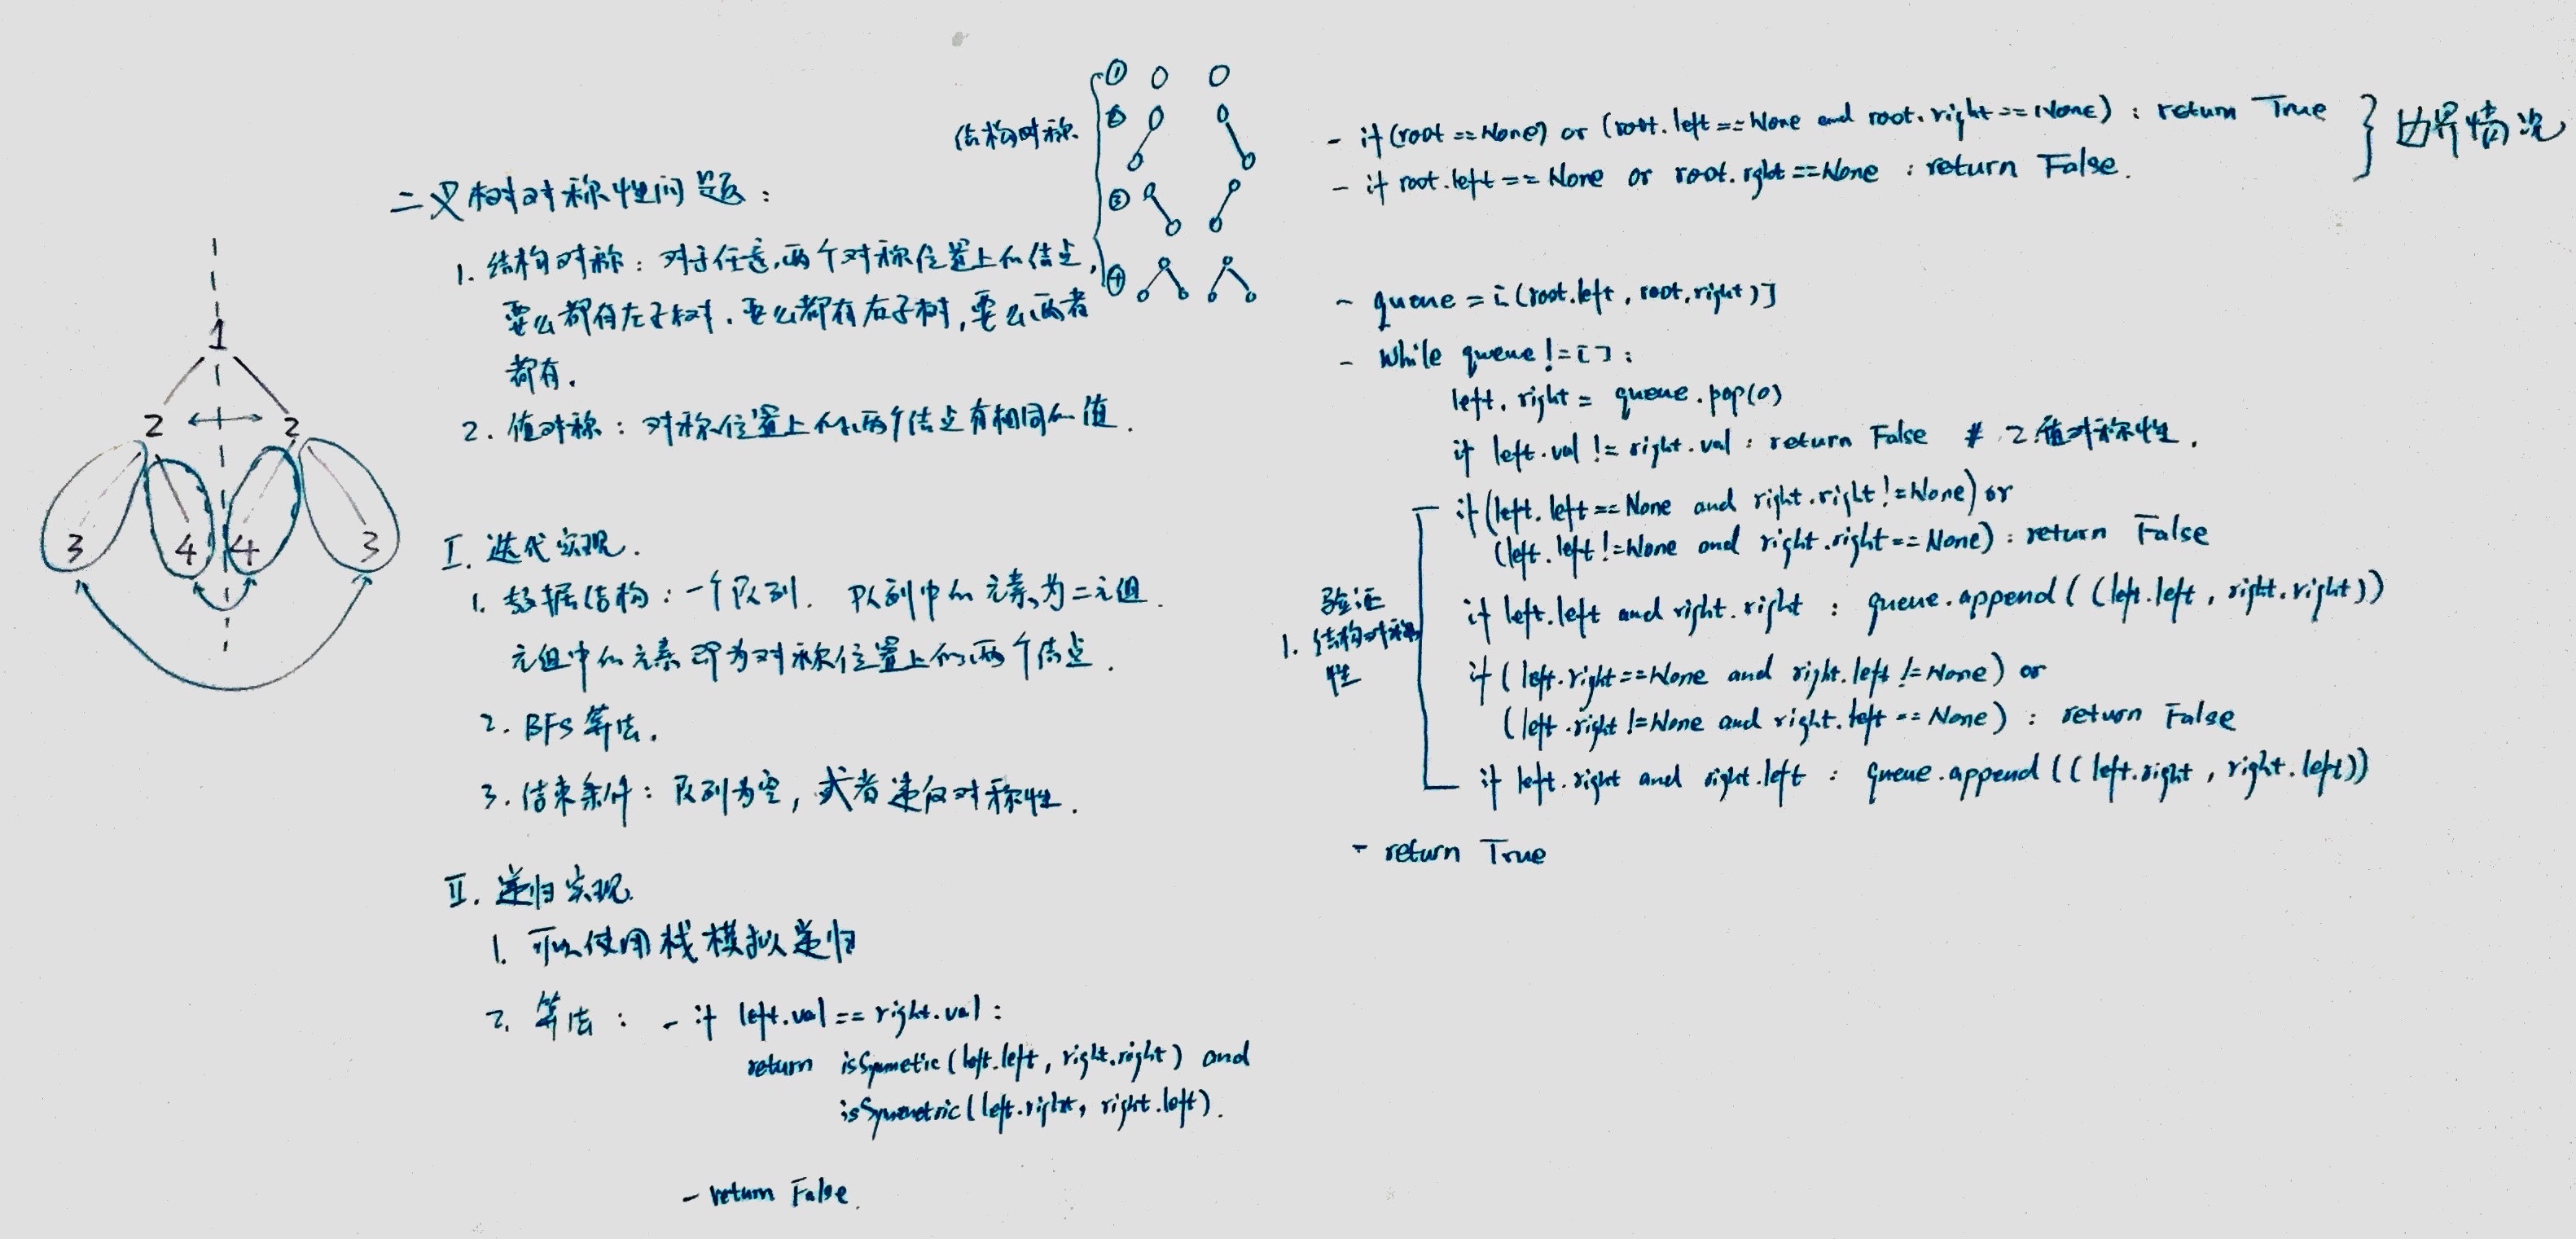 二叉树对称性问题：
1. 结构对称：对于任意两个对称位置上的结点，
要么都有左子树，要么都有右子树，要么两者
都有．
2. 值对称：对称位置上的两个结点有相同的值．
结构对称
①
②
③
④
1
2 2
3 4 4 3
I. 迭代实现．
1. 数据结构：一个队列． 队列中的元素为二元组．
元组中的元素即为对称位置上的两个结点．
2. BFS算法．
3. 结束条件：队列为空，或者违反对称性．
II. 递归实现
1. 可以使用栈模拟递归
2. 算法： - if left.val == right.val :
return isSymetic(left.left, right.right) and
isSymmetric(left.right, right.left).
- return False.
- if (root == None) or (root.left == None and root.right == None) : return True
- if root.left == None or root.rght == None : return False.
边界情况
- queue = [(root.left, root.right)]
- while queue != [] :
left, right = queue.pop(0)
if left.val != right.val : return False # 2.值对称性．
if (left.left == None and right.right != None) or
(left.left != None and right.right == None) : return False
if left.left and right.right : queue.append((left.left, right.right))
if (left.right == None and right.left != None) or
(left.right != None and right.left == None) : return False
if left.right and right.left : queue.append((left.right, right.left))
验证
1. 结构对称
性
- return True